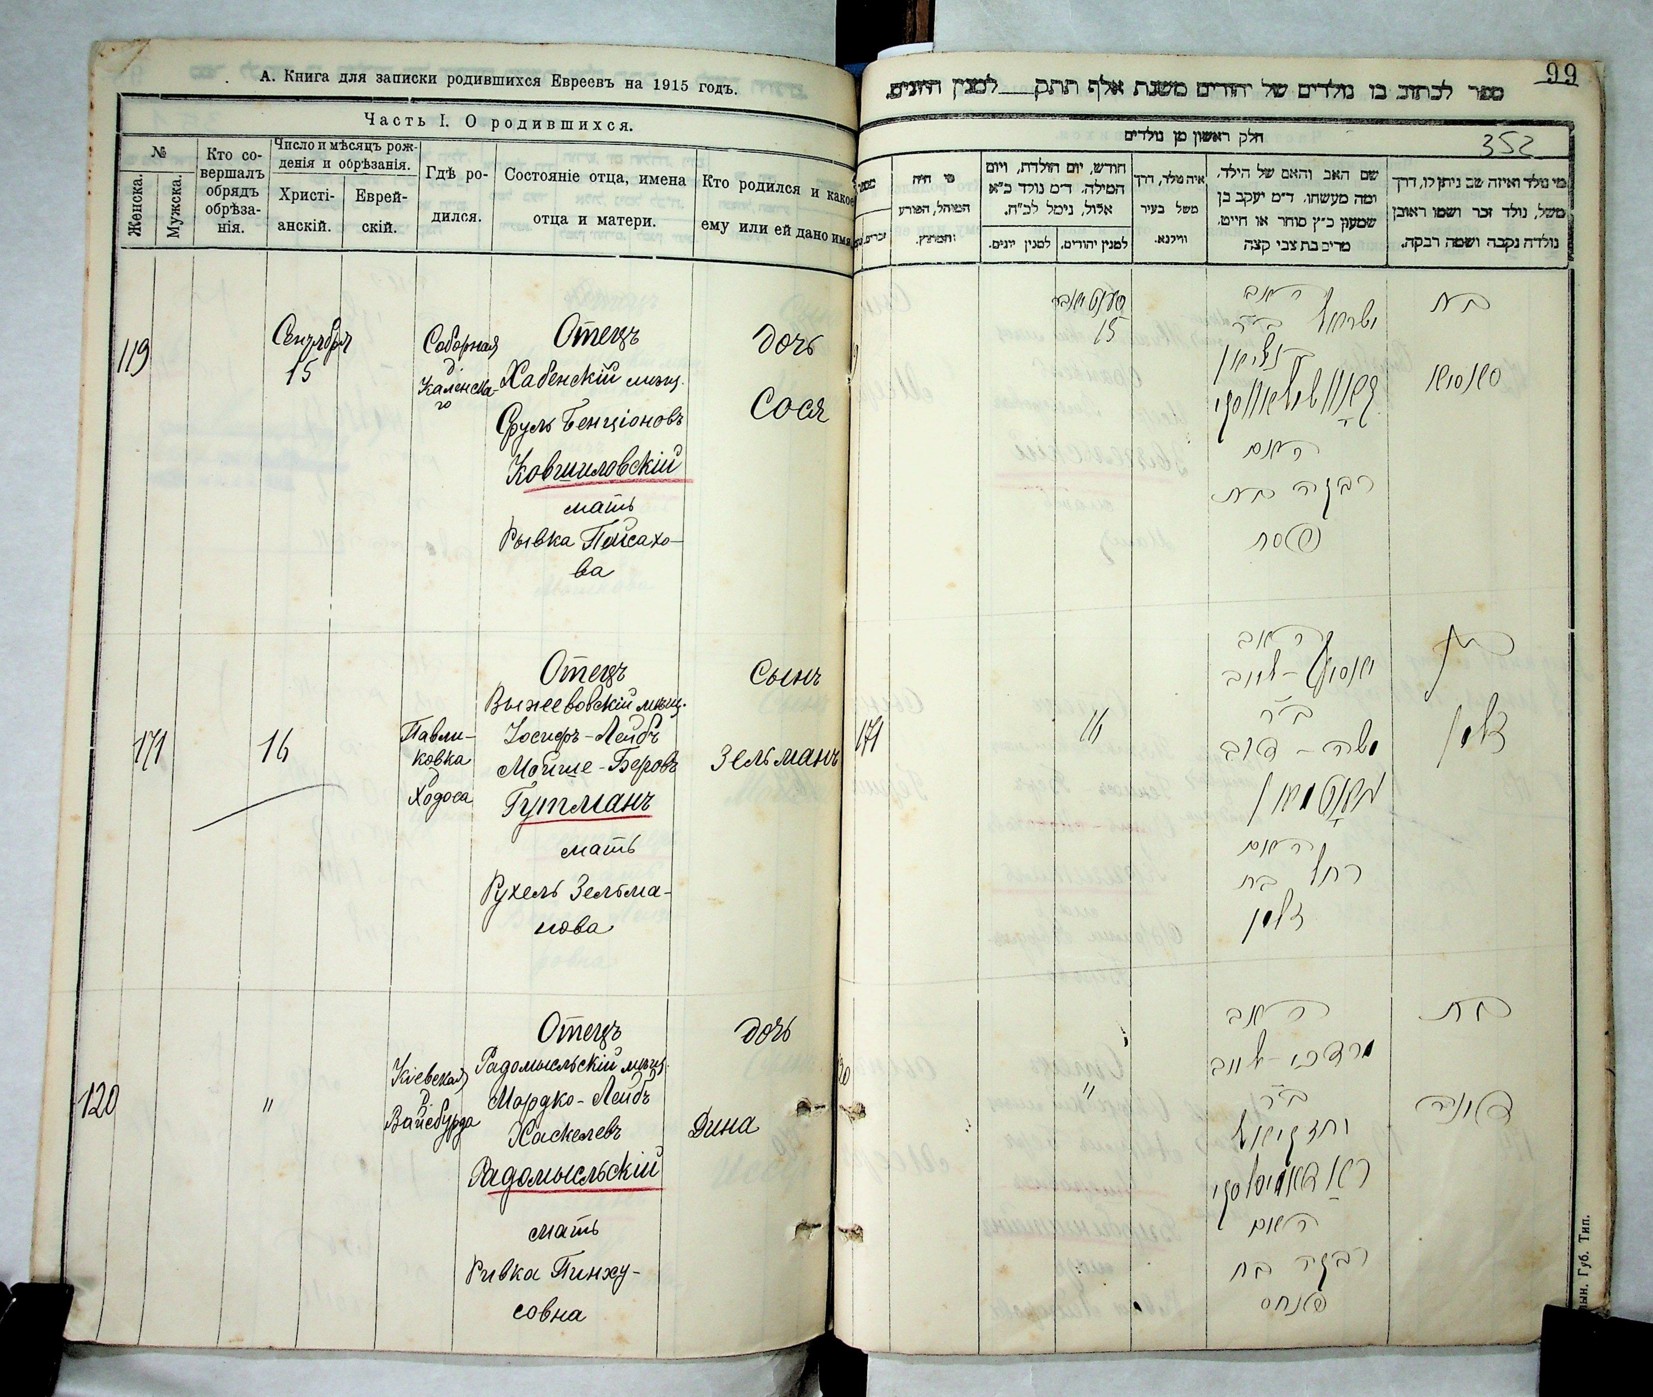 А. Книга для записки родившихся Евреевъ на 1915 годъ.
Часть I. О родившихся.
№
Женска.
Мужска.
Кто со-
вершалъ
обрядъ
обрѣза-
нія.
Число и мѣсяцъ рож-
денія и обрѣзанія.
Христі-
анскій.
Еврей-
скій.
Гдѣ ро-
дился.
Состояніе отца, имена
отца и матери.
Кто родился и какое
ему или ей дано имя
119
Сентября
15
Соборная
д.
Отецъ
Хабенскій мѣщ.
Сруль Бенціоновъ
Ковшиловскій
мать
Рывка Пейсахо-
ва
дочь
Сося
171
16
Павли-
ковка
д.
Ходоса
Отецъ
Выжевовскій мѣщ.
Іосифъ-Лейбъ
Мойше-Беровъ
Гутманъ
мать
Рухель Зельма-
нова
Сынъ
Зельманъ
120
"
Кіевская
д.
Вайсбурда
Отецъ
Радомысльскій мѣщ.
Мордко-Лейбъ
Хаскелевъ
Радомысльскій
мать
Ривка Пинху-
совна
дочь
Дина
99
ספר לכתוב בו נולדים של יהודים משנת אלף תתק למנין היונים.
352
חלק ראשון מן נולדים
מי היה
המוהל, הפורע
והמוצץ.
חודש, יום הולדת, ויום
המילה. ד״מ נולד כ״א
אלול, נימל לכ״ח.
למנין יונים.
למנין יהודים.
איה נולד, דרך
משל בעיר
ווילנא.
שם האב והאם של הילד,
ומה מעשהו. ד״מ יעקב בן
שמעון כ״ץ סוחר או חייט.
מרים בת צבי קצה
מי נולד ואיזה שם ניתן לו, דרך
משל, נולד זכר ושמו ראובן
נולדה נקבה ושמה רבקה.
15
האב
ישראל
ב״ר
האם
רבקה בת
פסח
בת
סאסיא
171
16
האב
ב״ר
משה-בער
האם
רחל בת
זלמן
בן
זלמן
"
האב
מרדכי-לייב
ב״ר
יחזקיאל
האם
רבקה בת
פנחס
בת
דינה
Губ. Тип.